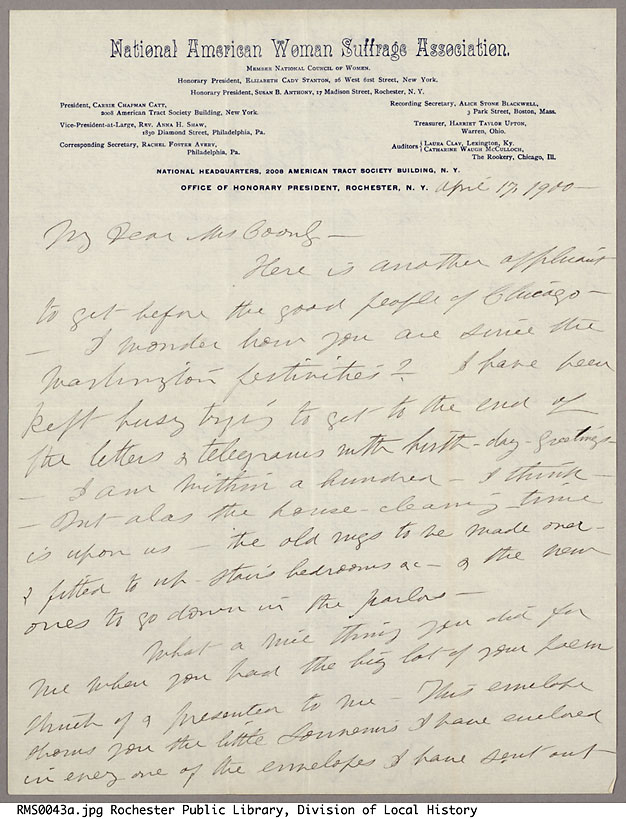 National American Woman Suffrage Association.
MEMBER NATIONAL COUNCIL OF WOMEN.
Honorary President, ELIZABETH CADY STANTON, 26 West 61st Street, New York.
Honorary President, SUSAN B. ANTHONY, 17 Madison Street, Rochester, N. Y.
President, CARRIE CHAPMAN CATT,
2008 American Tract Society Building, New York.
Vice-President-at-Large, REV. ANNA H. SHAW,
1830 Diamond Street, Philadelphia, Pa.
Corresponding Secretary, RACHEL FOSTER AVERY,
Philadelphia, Pa.
Recording Secretary, ALICE STONE BLACKWELL,
3 Park Street, Boston, Mass.
Treasurer, HARRIET TAYLOR UPTON,
Warren, Ohio.
Auditors { LAURA CLAY, Lexington, Ky.
CATHARINE WAUGH McCULLOCH,
The Rookery, Chicago, Ill.
NATIONAL HEADQUARTERS, 2008 AMERICAN TRACT SOCIETY BUILDING, N. Y.
OFFICE OF HONORARY PRESIDENT, ROCHESTER, N. Y. April 17, 1900 —
My Dear Mrs Coonly —
Here is another applicant
to get before the good people of Chicago —
— I wonder how you are since the
Washington festivities? I have been
kept busy trying to get to the end of
the letters & telegrams with birth-day-greetings
— I am within a hundred — I think —
— But alas the house-cleaning time
is upon us — the old rugs to be made over —
& fitted to up-stairs bedrooms &c — & the new
ones to go down in the parlors —
What a nice thing you did for
me when you had the big lot of your poem
struck off & presented to me — This envelope
shows you the little souvenirs I have enclosed
in every one of the envelopes I have sent out
RMS0043a.jpg Rochester Public Library, Division of Local History